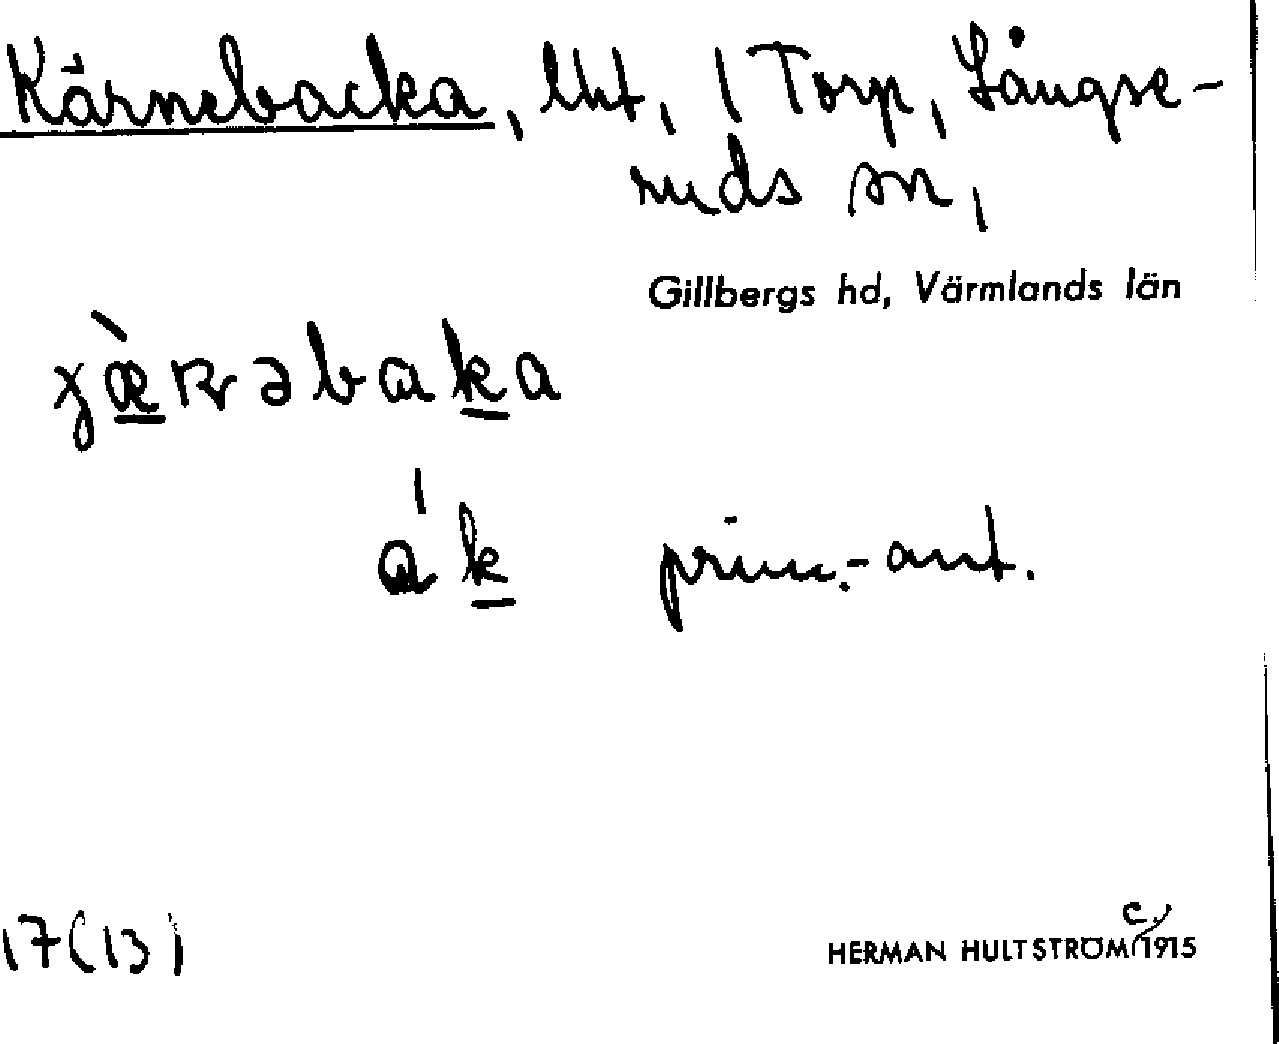 Kärnebacka, lht, / Torp, Långse-
ruds sn,
Gillbergs hd, Värmlands län
ák prim.-ant.
17(13)
HERMAN HULTSTRÖM c. 1915